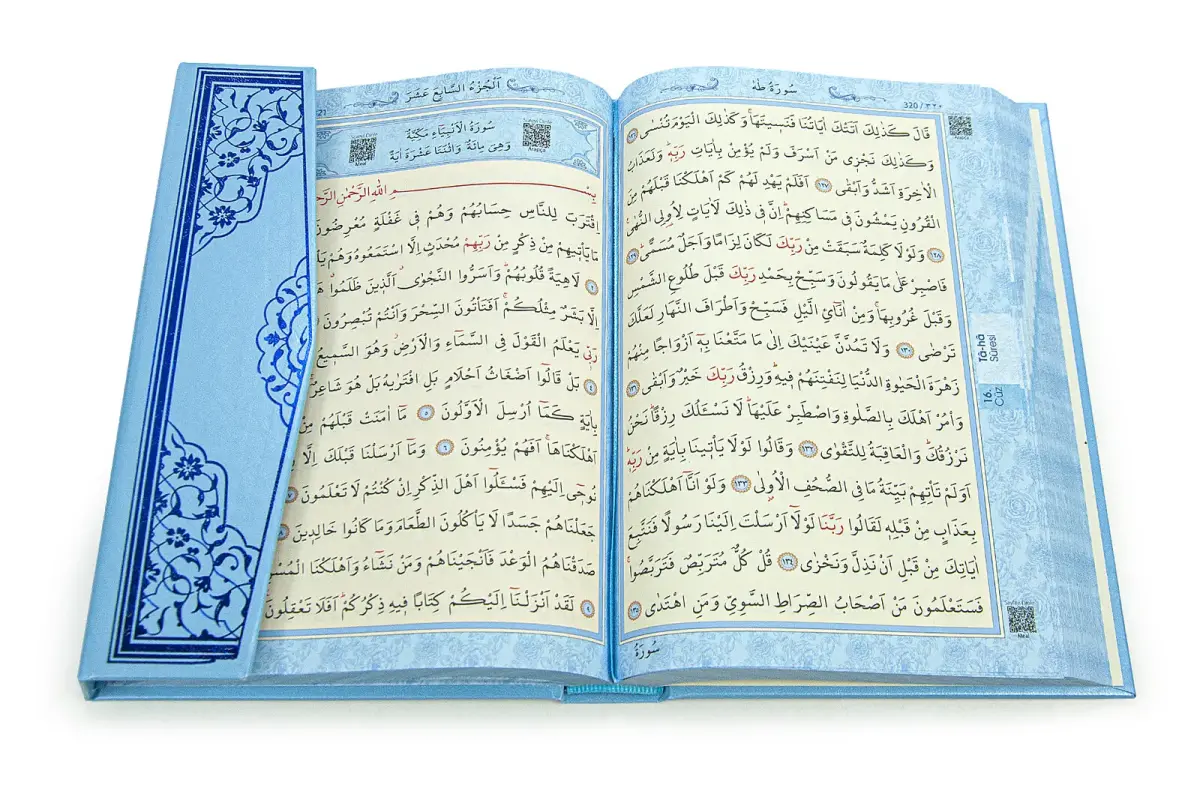 سُورَةُ طٰهٰ
320 / ٣٢٠
قَالَ كَذٰلِكَ اَتَتْكَ اٰيَاتُنَا فَنَسِيتَهَاۚ وَكَذٰلِكَ الْيَوْمَ تُنْسٰى ﴿١٢٦﴾
وَكَذٰلِكَ نَجْزٖى مَنْ اَسْرَفَ وَلَمْ يُؤْمِنْ بِاٰيَاتِ رَبِّهٖۜ وَلَعَذَابُ
الْاٰخِرَةِ اَشَدُّ وَاَبْقٰى ﴿١٢٧﴾ اَفَلَمْ يَهْدِ لَهُمْ كَمْ اَهْلَكْنَا قَبْلَهُمْ مِنَ
الْقُرُونِ يَمْشُونَ فٖى مَسَاكِنِهِمْۜ اِنَّ فٖى ذٰلِكَ لَاٰيَاتٍ لِاُولِى النُّهٰى
﴿١٢٨﴾ وَلَوْلَا كَلِمَةٌ سَبَقَتْ مِنْ رَبِّكَ لَكَانَ لِزَامًا وَاَجَلٌ مُسَمًّىۜ ﴿١٢٩﴾
فَاصْبِرْ عَلٰى مَا يَقُولُونَ وَسَبِّحْ بِحَمْدِ رَبِّكَ قَبْلَ طُلُوعِ الشَّمْسِ
وَقَبْلَ غُرُوبِهَاۚ وَمِنْ اٰنَٓائِ الَّيْلِ فَسَبِّحْ وَاَطْرَافَ النَّهَارِ لَعَلَّكَ
تَرْضٰى ﴿١٣٠﴾ وَلَا تَمُدَّنَّ عَيْنَيْكَ اِلٰى مَا مَتَّعْنَا بِهٖٓ اَزْوَاجًا مِنْهُمْ
زَهْرَةَ الْحَيٰوةِ الدُّنْيَا لِنَفْتِنَهُمْ فٖيهِۜ وَرِزْقُ رَبِّكَ خَيْرٌ وَاَبْقٰى ﴿١٣١﴾
وَأْمُرْ اَهْلَكَ بِالصَّلٰوةِ وَاصْطَبِرْ عَلَيْهَاۜ لَا نَسْـَٔلُكَ رِزْقًاۜ نَحْنُ
نَرْزُقُكَۜ وَالْعَاقِبَةُ لِلتَّقْوٰى ﴿١٣٢﴾ وَقَالُوا لَوْلَا يَأْتٖينَا بِاٰيَةٍ مِنْ رَبِّهٖۜ
اَوَلَمْ تَأْتِهِمْ بَيِّنَةُ مَا فِى الصُّحُفِ الْاُولٰى ﴿١٣٣﴾ وَلَوْ اَنَّٓا اَهْلَكْنَاهُمْ
بِعَذَابٍ مِنْ قَبْلِهٖ لَقَالُوا رَبَّنَا لَوْلَٓا اَرْسَلْتَ اِلَيْنَا رَسُولًا فَنَتَّبِعَ
اٰيَاتِكَ مِنْ قَبْلِ اَنْ نَذِلَّ وَنَخْزٰى ﴿١٣٤﴾ قُلْ كُلٌّ مُتَرَبِّصٌ فَتَرَبَّصُواۚ
فَسَتَعْلَمُونَ مَنْ اَصْحَابُ الصِّرَاطِ السَّوِيِّ وَمَنِ اهْتَدٰى ﴿١٣٥﴾
سُورَةُ
Tâ-hâ
Sûresi
16.
Cüz
Meal
اَلْجُزْءُ السَّابِعَ عَشَرَ
21
سُورَةُ الْاَنْبِيَاءِ مَكِّيَّةٌ
وَهِىَ مِائَةٌ وَاثْنَتَا عَشْرَةَ اٰيَةً
بِسْمِ اللّٰهِ الرَّحْمٰنِ
اِقْتَرَبَ لِلنَّاسِ حِسَابُهُمْ وَهُمْ فٖى غَفْلَةٍ مُعْرِضُونَ
مَا يَأْتٖيهِمْ مِنْ ذِكْرٍ مِنْ رَبِّهِمْ مُحْدَثٍ اِلَّا اسْتَمَعُوهُ وَهُمْ
﴿٢﴾ لَاهِيَةً قُلُوبُهُمْۜ وَاَسَرُّوا النَّجْوٰىۗ اَلَّذٖينَ ظَلَمُواۗ
اِلَّا بَشَرٌ مِثْلُكُمْۚ اَفَتَأْتُونَ السِّحْرَ وَاَنْتُمْ تُبْصِرُونَ
رَبّٖى يَعْلَمُ الْقَوْلَ فِى السَّمَٓاءِ وَالْاَرْضِۘ وَهُوَ السَّمٖيعُ
﴿٤﴾ بَلْ قَالُٓوا اَضْغَاثُ اَحْلَامٍ بَلِ افْتَرٰيهُ بَلْ هُوَ شَاعِرٌۚ
بِاٰيَةٍ كَمَٓا اُرْسِلَ الْاَوَّلُونَ ﴿٥﴾ مَٓا اٰمَنَتْ قَبْلَهُمْ مِنْ
اَهْلَكْنَاهَاۚ اَفَهُمْ يُؤْمِنُونَ ﴿٦﴾ وَمَٓا اَرْسَلْنَا قَبْلَكَ اِلَّا
نُوحٖٓى اِلَيْهِمْ فَسْـَٔلُٓوا اَهْلَ الذِّكْرِ اِنْ كُنْتُمْ لَا تَعْلَمُونَ ﴿٧﴾
جَعَلْنَاهُمْ جَسَدًا لَا يَأْكُلُونَ الطَّعَامَ وَمَا كَانُوا خَالِدٖينَ ﴿٨﴾
صَدَقْنَاهُمُ الْوَعْدَ فَاَنْجَيْنَاهُمْ وَمَنْ نَشَٓاءُ وَاَهْلَكْنَا
﴿٩﴾ لَقَدْ اَنْزَلْنَٓا اِلَيْكُمْ كِتَابًا فٖيهِ ذِكْرُكُمْۜ اَفَلَا تَعْقِلُونَ